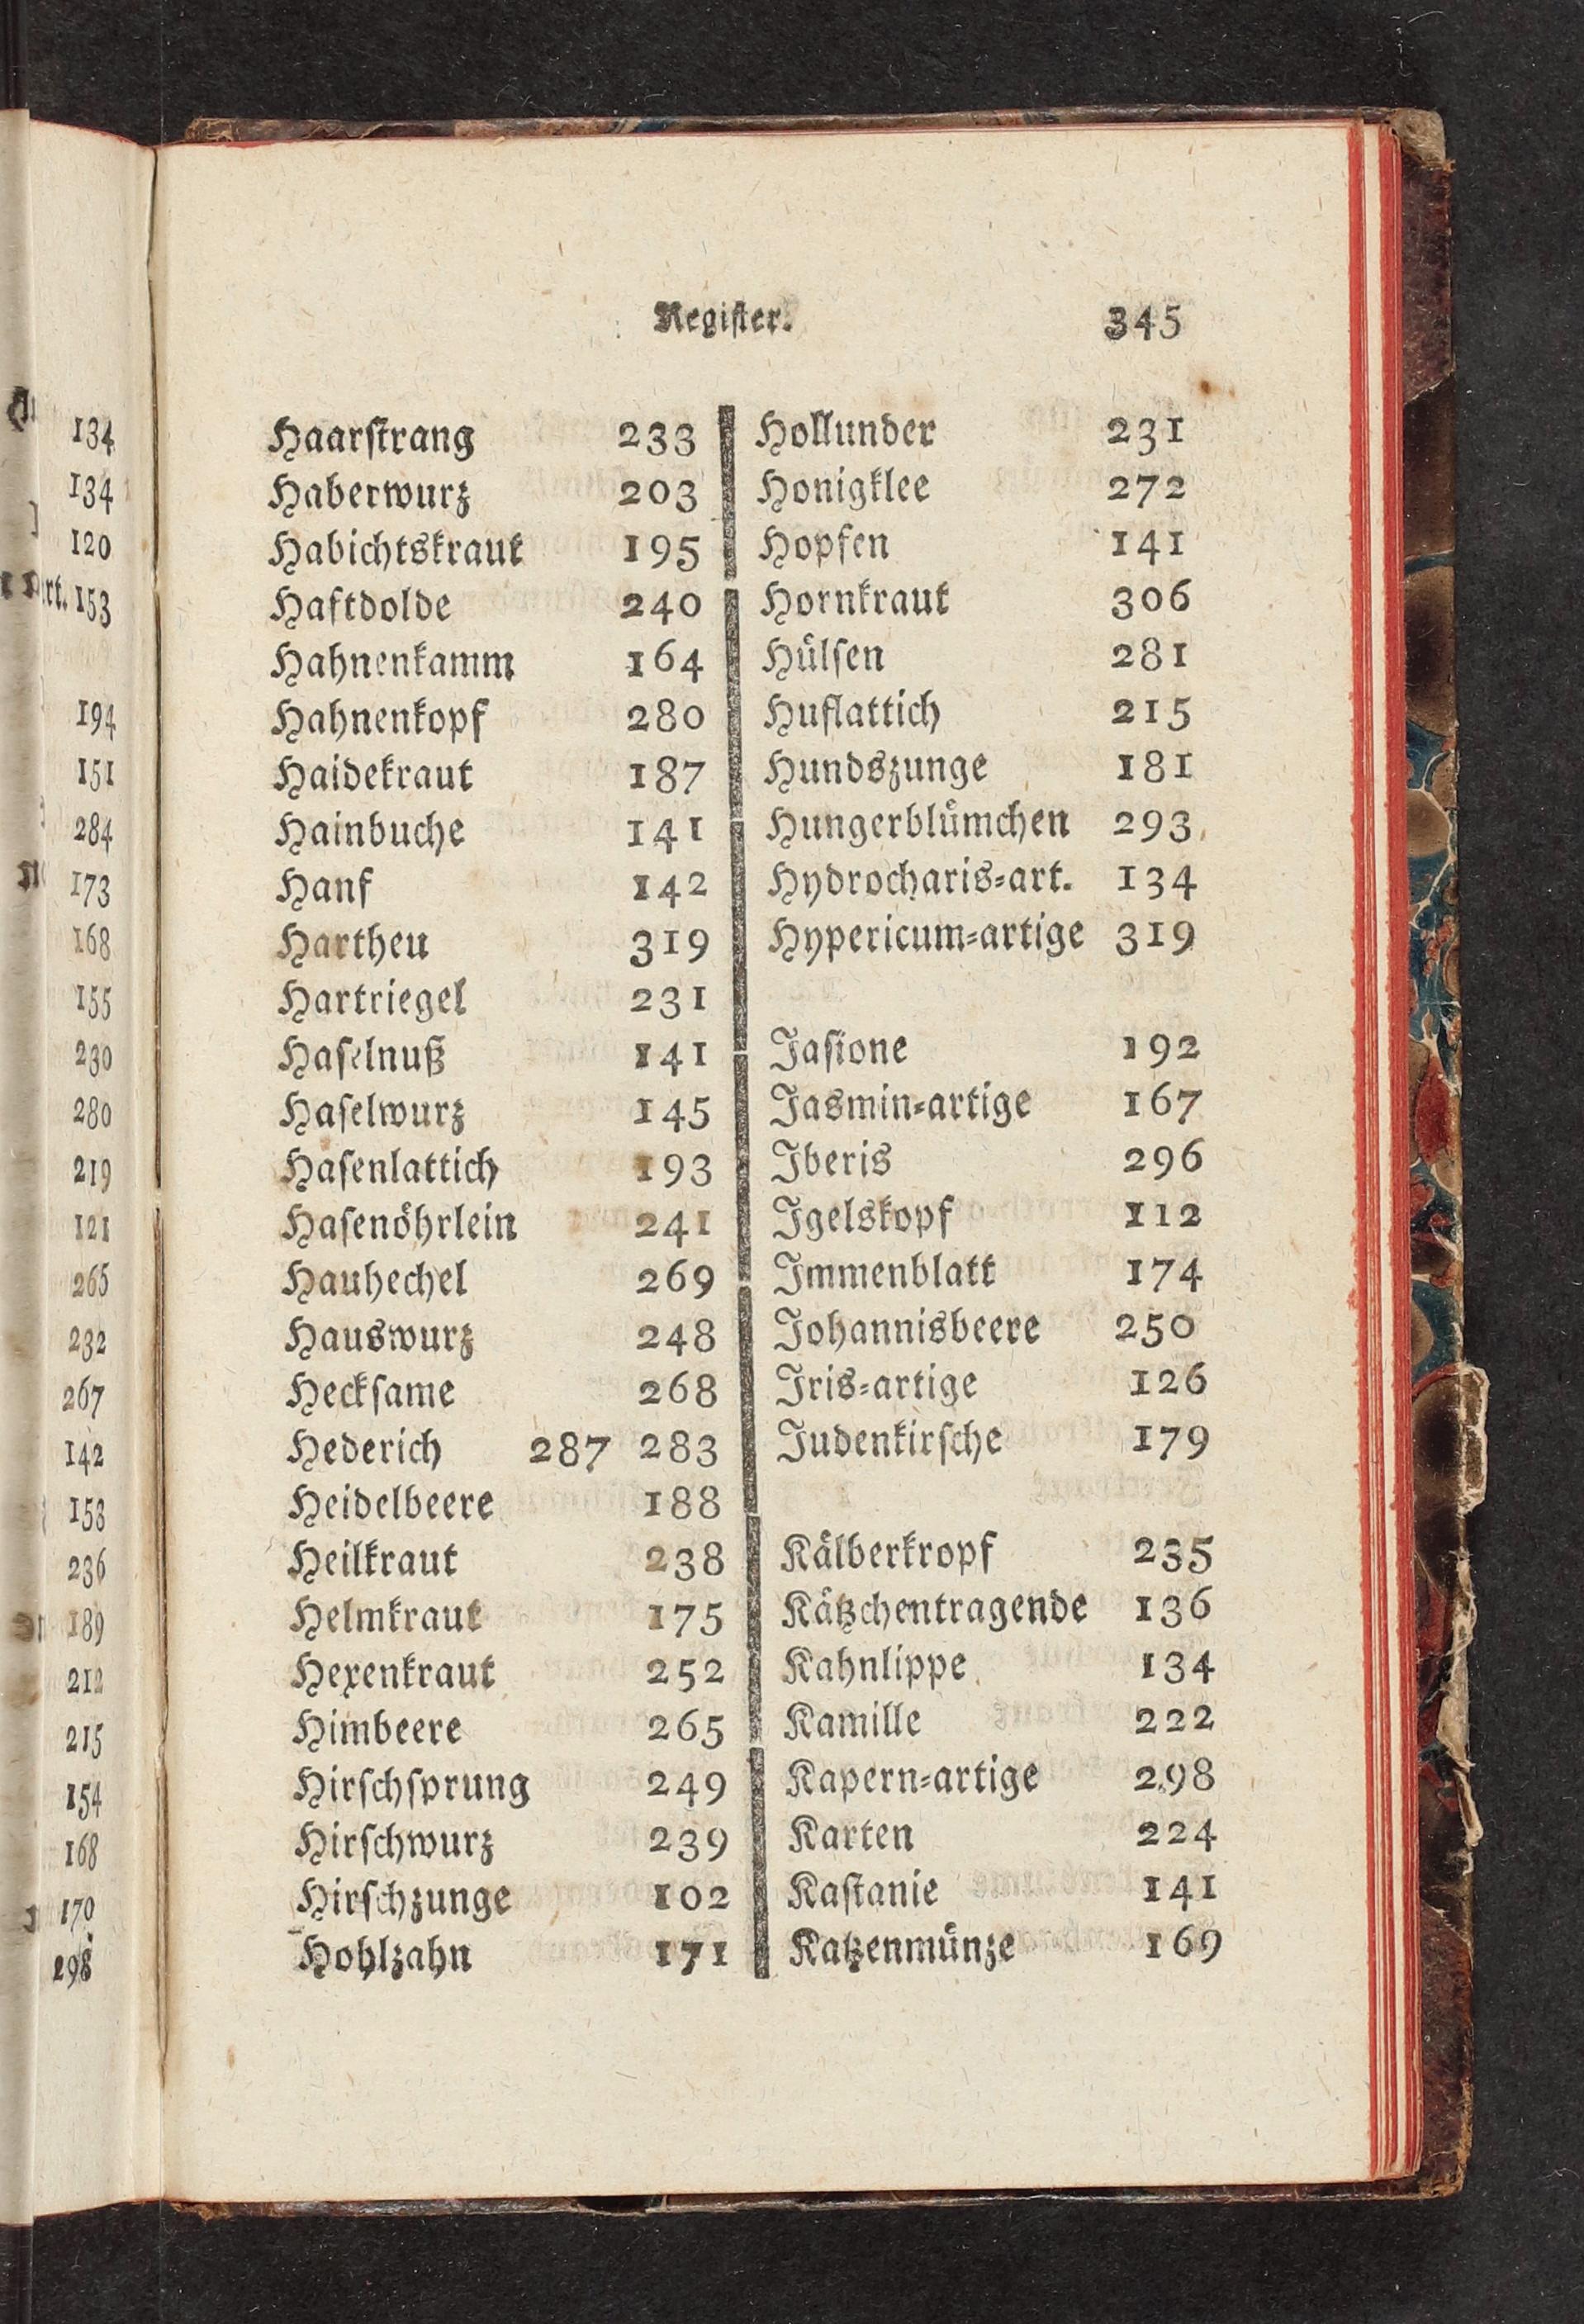 134
134
120
art. 153
194
151
284
173
168
155
230
280
219
121
265
232
267
142
153
236
189
212
215
154
168
170
298
Register. 345
Haarſtrang 233
Haberwurz 203
Habichtskraut 195
Haftdolde 240
Hahnenkamm 164
Hahnenkopf 280
Haidekraut 187
Hainbuche 141
Hanf 142
Hartheu 319
Hartriegel 231
Haſelnuß 141
Haſelwurz 145
Haſenlattich 193
Haſenöhrlein 241
Hauhechel 269
Hauswurz 248
Heckſame 268
Hederich 287 283
Heidelbeere 188
Heilkraut 238
Helmkraut 175
Hexenkraut 252
Himbeere 265
Hirſchſprung 249
Hirſchwurz 239
Hirſchzunge 102
Hohlzahn 171
Hollunder 231
Honigklee 272
Hopfen 141
Hornkraut 306
Hülſen 281
Huflattich 215
Hundszunge 181
Hungerblümchen 293
Hydrocharis-art. 134
Hypericum-artige 319
Jaſione 192
Jasmin-artige 167
Iberis 296
Igelskopf 112
Immenblatt 174
Johannisbeere 250
Iris-artige 126
Judenkirſche 179
Kälberkropf 235
Kätzchentragende 136
Kahnlippe 134
Kamille 222
Kapern-artige 298
Karten 224
Kaſtanie 141
Katzenmünze 169